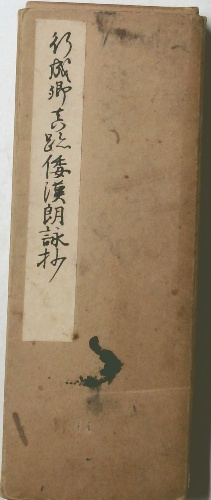 行成卿真跡倭漢朗詠抄